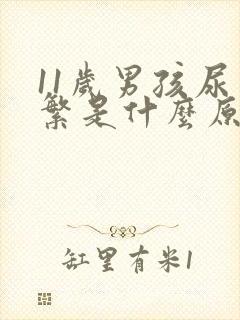 11歲男孩尿
繁是什麼原
缸里有米1